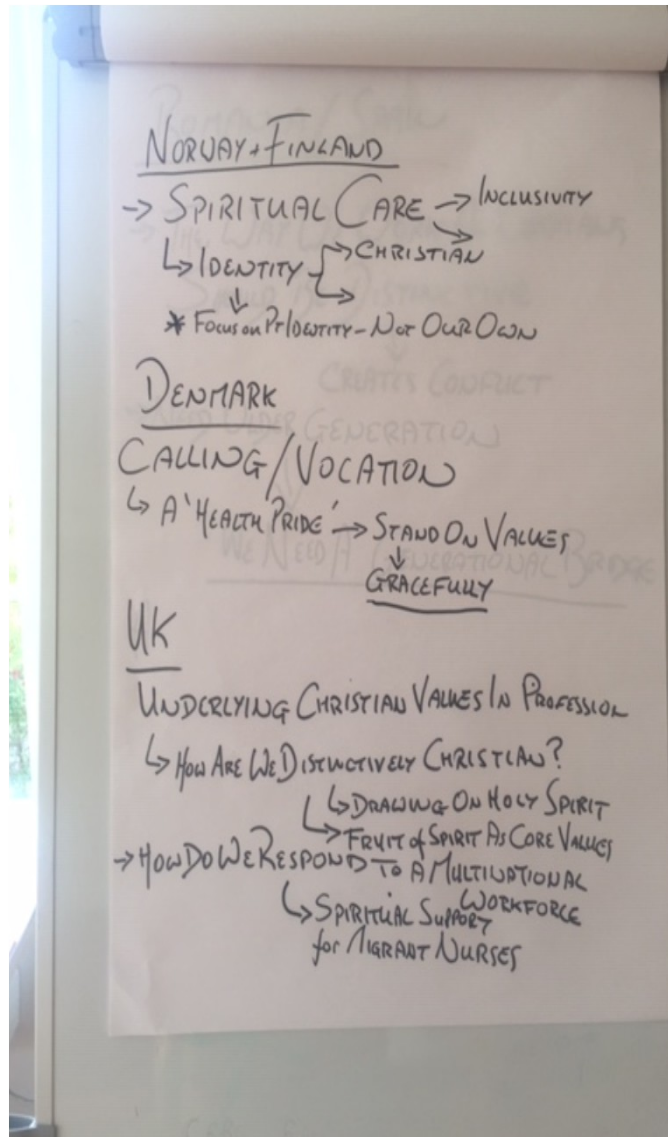 NORWAY + FINLAND
→ SPIRITUAL CARE → INCLUSIVITY
→
↳ IDENTITY → CHRISTIAN
→
↓
* FOCUS on Pt IDENTITY - NOT OUR OWN
DENMARK
CALLING / VOCATION
↳ A 'HEALTH PRIDE' → STAND ON VALUES
↓
GRACEFULLY
UK
UNDERLYING CHRISTIAN VALUES IN PROFESSION
↳ HOW ARE WE DISTINCTIVELY CHRISTIAN?
↳ DRAWING ON HOLY SPIRIT
↳ FRUIT of SPIRIT AS CORE VALUES
→ HOW DO WE RESPOND TO A MULTINATIONAL
WORKFORCE
↳ SPIRITUAL SUPPORT
for MIGRANT NURSES
ROMANIA / SPAIN
CREATES CONFLICT
GENERATION
WE NEED A GENERATIONAL BRIDGE